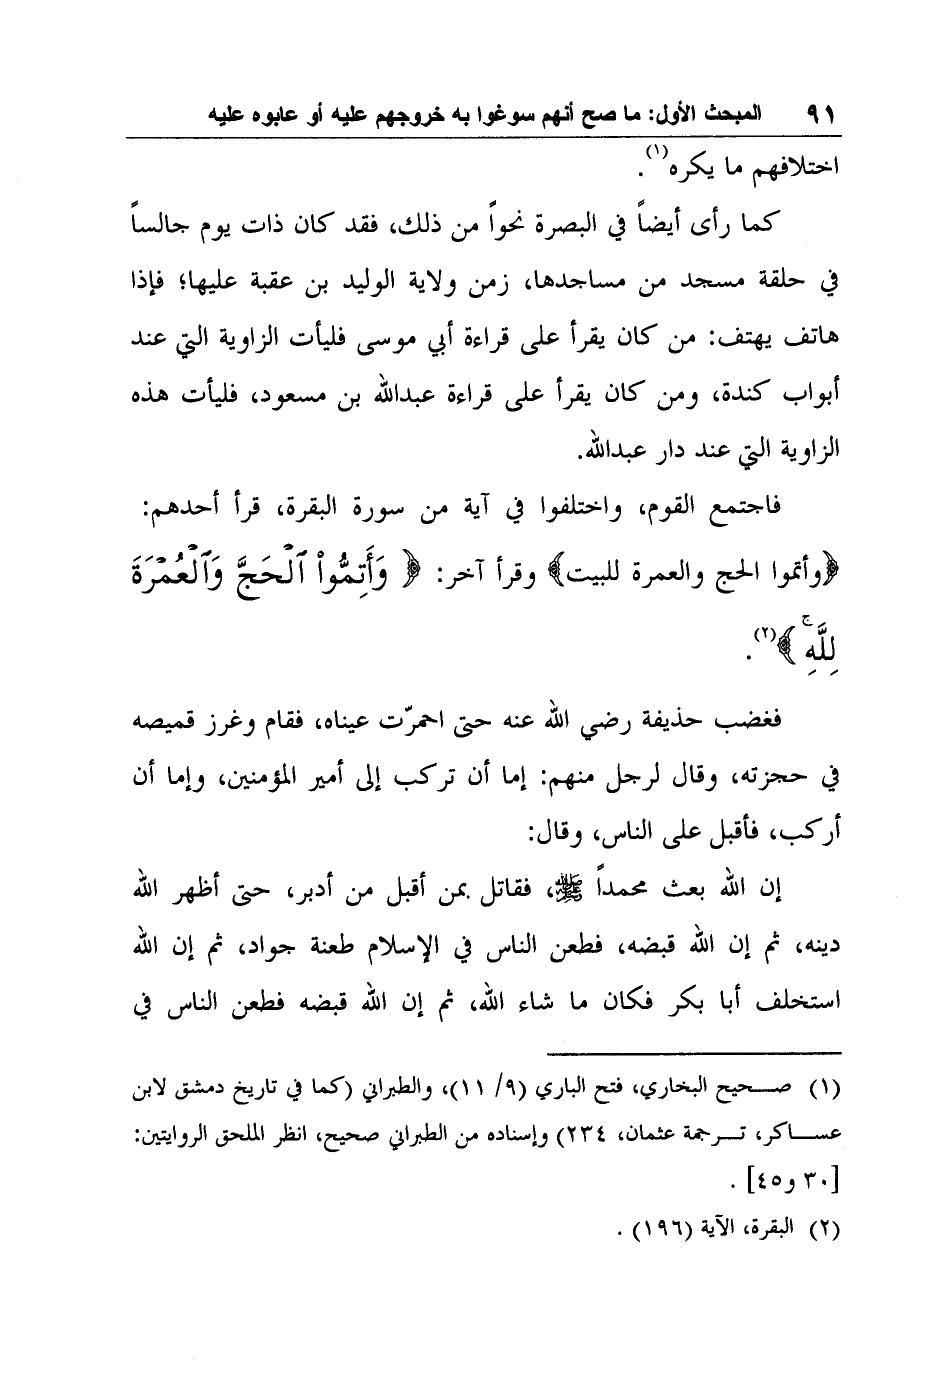 ٩١ المبحث الأول: ما صح أنهم سوغوا به خروجهم عليه أو عابوه عليه
اختلافهم ما يكره(١).
كما رأى أيضاً في البصرة نحواً من ذلك، فقد كان ذات يوم جالساً
في حلقة مسجد من مساجدها، زمن ولاية الوليد بن عقبة عليها؛ فإذا
هاتف يهتف: من كان يقرأ على قراءة أبي موسى فليأت الزاوية التي عند
أبواب كندة، ومن كان يقرأ على قراءة عبدالله بن مسعود، فليأت هذه
الزاوية التي عند دار عبدالله.
فاجتمع القوم، واختلفوا في آية من سورة البقرة، قرأ أحدهم:
﴿وأتموا الحج والعمرة للبيت﴾ وقرأ آخر: ﴿ وَأَتِمُّواْ ٱلْحَجَّ وَٱلْعُمْرَةَ
لِلَّهِۚ ﴾(٢).
فغضب حذيفة رضي الله عنه حتى احمرّت عيناه، فقام وغرز قميصه
في حجزته، وقال لرجل منهم: إما أن تركب إلى أمير المؤمنين، وإما أن
أركب، فأقبل على الناس، وقال:
إن الله بعث محمداً ﷺ، فقاتل بمن أقبل من أدبر، حتى أظهر الله
دينه، ثم إن الله قبضه، فطعن الناس في الإسلام طعنة جواد، ثم إن الله
استخلف أبا بكر فكان ما شاء الله، ثم إن الله قبضه فطعن الناس في
(١) صـحيح البخاري، فتح الباري (٩/ ١١)، والطبراني (كما في تاريخ دمشق لابن
عســاكر، تــرجمة عثمان، ٢٣٤) وإسناده من الطبراني صحيح، انظر الملحق الروايتين:
[٣٠ و٤٥] .
(٢) البقرة، الآية (١٩٦) .